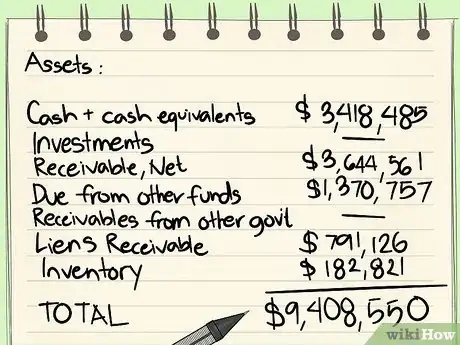 Assets:
Cash + cash equivalents $ 3,418,485
Investments —
Receivable, Net $3,644,561
Due from other funds $1,370,757
Receivables from other govt —
Liens Receivable $ 791,126
Inventory $ 182,821
TOTAL $9,408,550
wikiHow